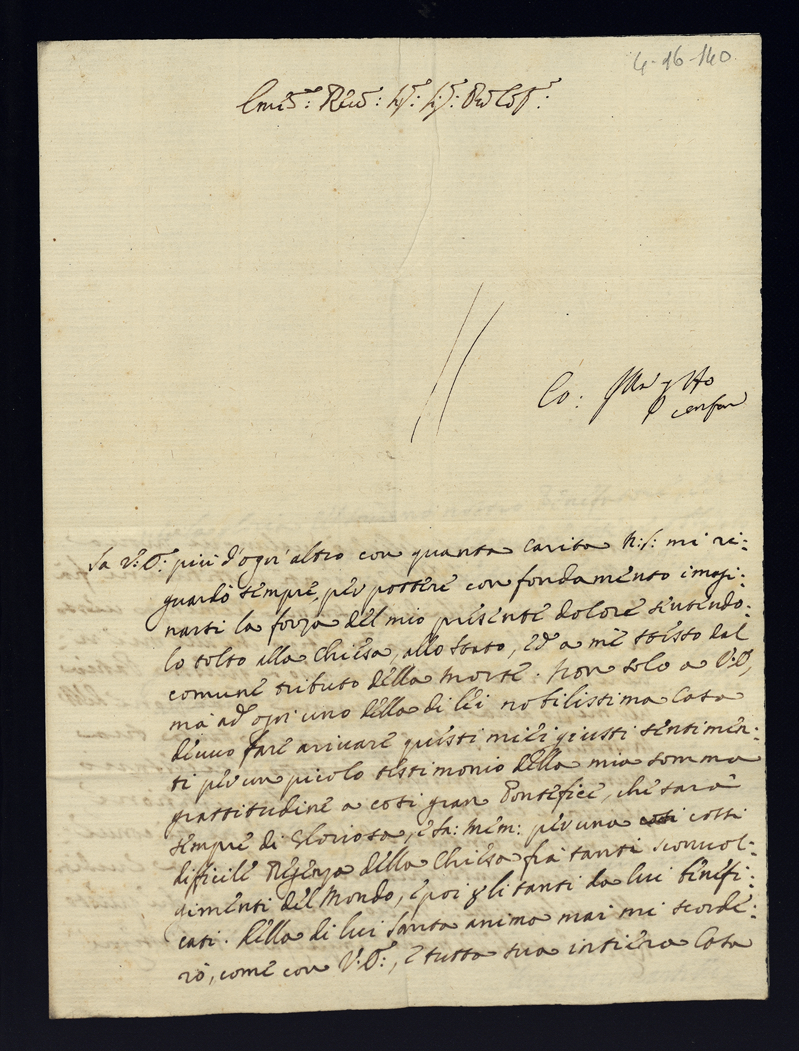 4-16-140
Emo: Revo: Sr: Sr: Pron Colmo:
Co:
Sa V: E: più d'ogn'altro con quanta carita N: S: mi ri:
guardò sempre, per pottere con fondamento imagi:
narsi la forza del mio presente dolore sentendo:
lo tolto alla Chiesa, allo Stato, ed a me stesso dal
comune tributo della morte. Non solo a V: E,
ma ad ogn'uno della di lei nobilissima Casa
devvo fare arivare questi miei giusti sentimen:
ti per un picolo testimonio della mia somma
grattitudine a così gran Pontefice, che sarà
sempre di Gloriosa, e Sa: Mem: per una così cossi
difficile Regenza della Chiesa frà tanti sconvol:
gimenti del Mondo, e poi gli tanti da lui benefi:
cati. Della di lui Santa anima mai mi scorde:
rò, come con V: E:, e tutta sua intiera Casa